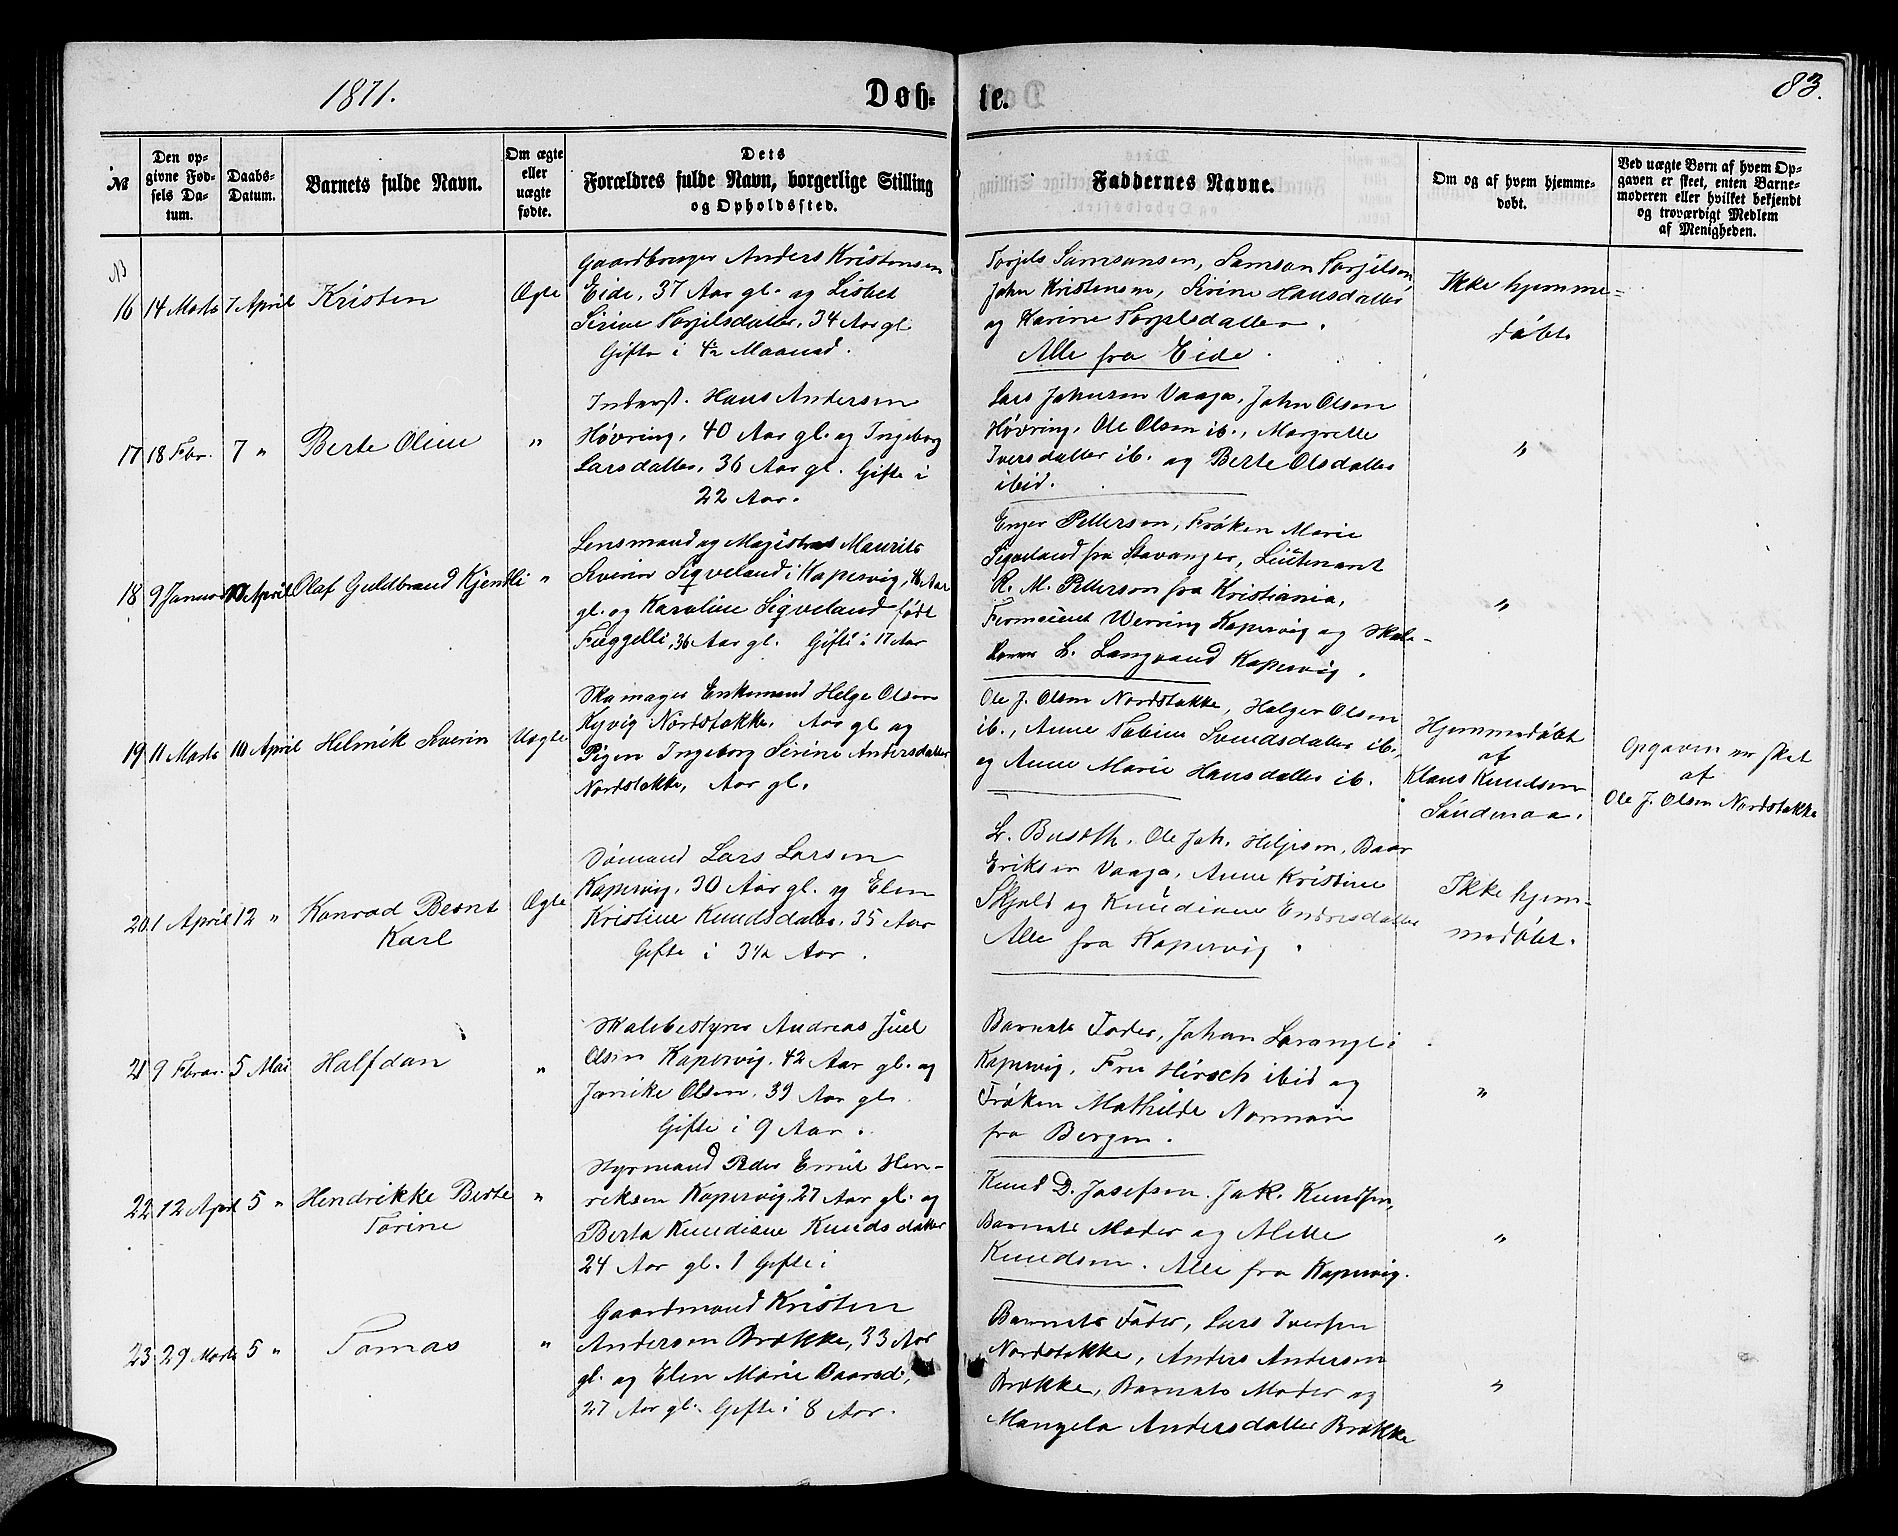 1871.
Døb=
te.
83.
№
Den op-
givne Fød-
sels Da-
tum.
Daabs-
Datum.
Barnets fulde Navn.
Om ægte
eller
uægte
fødte.
Dets
Forældres fulde Navn, borgerlige Stilling
og Opholdssted.
Faddernes Navne.
Om og af hvem hjemme-
døbt.
Ved uægte Børn af hvem Op-
gaven er skeet, enten Barne-
moderen eller hvilket bekjendt
og troværdigt Medlem
af Menigheden.
16 14 Marts 7 April Kristen Ægte
Gaardbruger Anders Kristensen
Eide, 37 Aar gl. og Lisbet
Sirine Torjilsdatter, 34 Aar gl
Gifte i 4½ Maaned.
Torjils Samsonsen, Samson Torjilsen,
John Kristensen, Sirine Hansdatter
og Karine Torjilsdatter.
Alle fra Eide.
Ikke hjemme=
døbt
17 18 Fbr. 7 " Berte Oline "
Inderst. Hans Andersen
Høvring, 40 Aar gl. og Ingeborg
Larsdatter, 36 Aar gl. Gifte i
22 Aar.
Lars Johnsen Vaage, John Olsen
Høvring, Ole Olsen ib., Margrette
Iversdatter ib. og Berte Olsdatter
ibid.
"
18 9 Januar 10 April Olaf Guldbrand Kjendli "
Lensmand og Maurits
Severin Sigveland i Kopervig, Aar
gl. og Karoline Sigveland født
36 Aar gl. Gifte i 17 Aar
Enger Pettersen, Frøken Marie
Sigveland fra Stavanger, Liutenant
R. M. Petterson fra Kristiania,
Werring Kopervig og Skole-
L. Langaand Kopervig.
"
19 11 Marts 10 April Helmik Severin Uægte
Enkemand Helge Olsen
Kyvig Nordstokke, Aar gl og
Pigen Ingeborg Sirine Andersdatter
Nordstokke, Aar gl.
Ole J. Olsen Nordstokke, Holger Olsen
ib., Anne Tobine Svendsdatter ib.,
og Anne Marie Hansdatter ib.
Hjemmedøbt
af
Klaus Knudsen
Opgaven er skeet
af
Ole J. Olsen Nordstokke
20 1 April 12 " Konrad Bernt Ægte
Karl
Sømand Lars Larsen
Kopervig, 30 Aar gl. og Elen
Kristine Knudsdatter, 35 Aar
Gifte i 3½ Aar.
L. Ole Joh. Heljesen, Baar
Eriksen Vaage, Anne Kristine
Skjold og Knudiane Endresdatter
Alle fra Kopervig.
Ikke hjem-
medøbt.
21 9 Fbrar. 5 Mai Halfdan "
Skolebestyrer Andreas Juel
Olsen Kopervig, 42 Aar gl. og
Janike Olsen, 39 Aar gl.
Gifte i 9 Aar.
Barnets Fader, Johan Lorange i
Kopervig, Fru Hirsch ibid og
Frøken Mathilde Norman
fra Bergen.
"
22 12 April 5 " Hendrikke Berte "
Torine
Styrmand Peder Emil Hen-
riksen Kopervig, 27 Aar gl. og
Berta Knudiane Knudsdatter
24 Aar gl. 1 Gifte i
Knud D. Josefsen, Jak. Knudsen,
Barnets Moder og Alette
Knudsen. Alle fra Kopervig.
"
23 29 Marts 5 " Tomas "
Gaardmand Kristen
Andersen Brække, 33 Aar
gl. og Elen Marie Baarsd,
27 Aar gl. Gifte i 8 Aar.
Barnets Fader, Lars Iversen
Nordstokke, Anders Andersen
Brække, Barnets Moder og
Mangela Andersdatter Brække
"